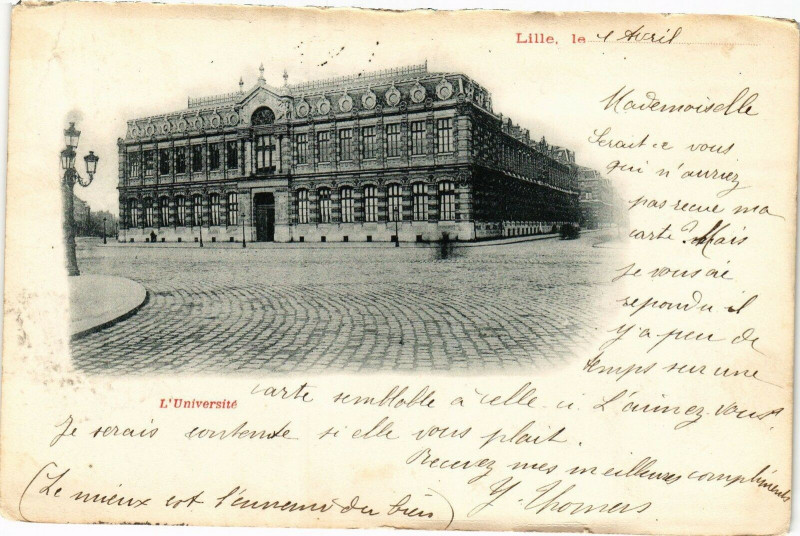 Lille, le 1 Avril
Mademoiselle
Serait-ce vous
qui n'auriez
pas recue ma
carte? Mais
je vous ai
repondu il
y a peu de
temps sur une
L'Université
carte semblable à celle-ci. L'aimez-vous?
Je serais contente si elle vous plait.
Recevez mes meilleures compliments
Y. Thomers
(Le mieux est l'ennemi du bien)